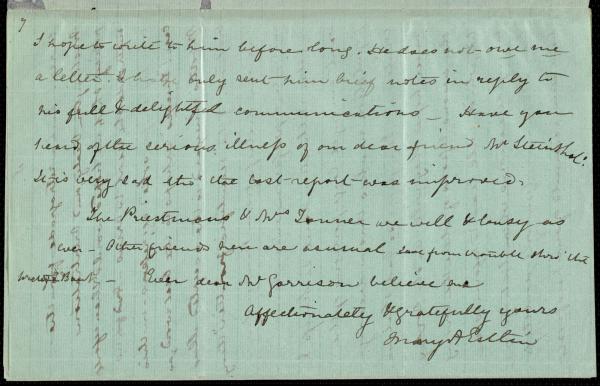 7
I hope to write to him before long. He does not owe me
a letter. I have only sent him brief notes in reply to
his full & delightful communications — Have you
heard of the serious illness of our dear friend Mr Steinthal.
It is very sad tho' the last report was improved.
The Priestmans & Mrs Tanner are well & busy as
ever — Other friends here are as usual save from trouble thro' the
Bank — Ever dear Mr Garrison believe me
Affectionately & gratefully yours
Mary A Estlin